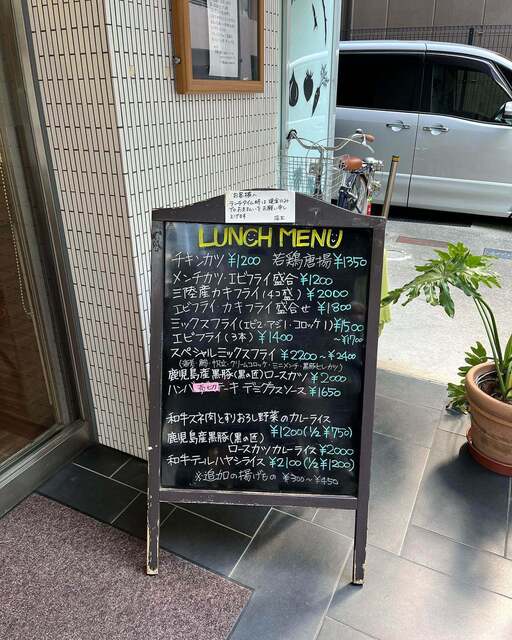 お客様へ
ランチタイム時は現金のみ
でお支払いをお願い申し
上げます 店主
LUNCH MENU
チキンカツ ¥1200 若鶏唐揚 ¥1350
メンチカツ・エビフライ盛合 ¥1200
三陸産カキフライ(4コ盛) ¥2000
エビフライ カキフライ盛合せ ¥1800
ミックスフライ(エビ2・アジ1・コロッケ1) ¥1500
エビフライ(3本) ¥1400 ~¥1700
スペシャルミックスフライ ¥2200~¥2400
クリームコロッケ・ミニメンチ・黒豚ヒレカツ)
鹿児島産黒豚(黒の匠)ロースカツ ¥2000
ハンバ 売切 ーキ デミグラスソース ¥1650
和牛スネ肉とすりおろし野菜のカレーライス
¥1200(½ ¥750)
鹿児島産黒豚(黒の匠)
ロースカツカレーライス ¥2000
和牛テールハヤシライス ¥2100(½ ¥1200)
※追加の揚げもの ¥300~¥450